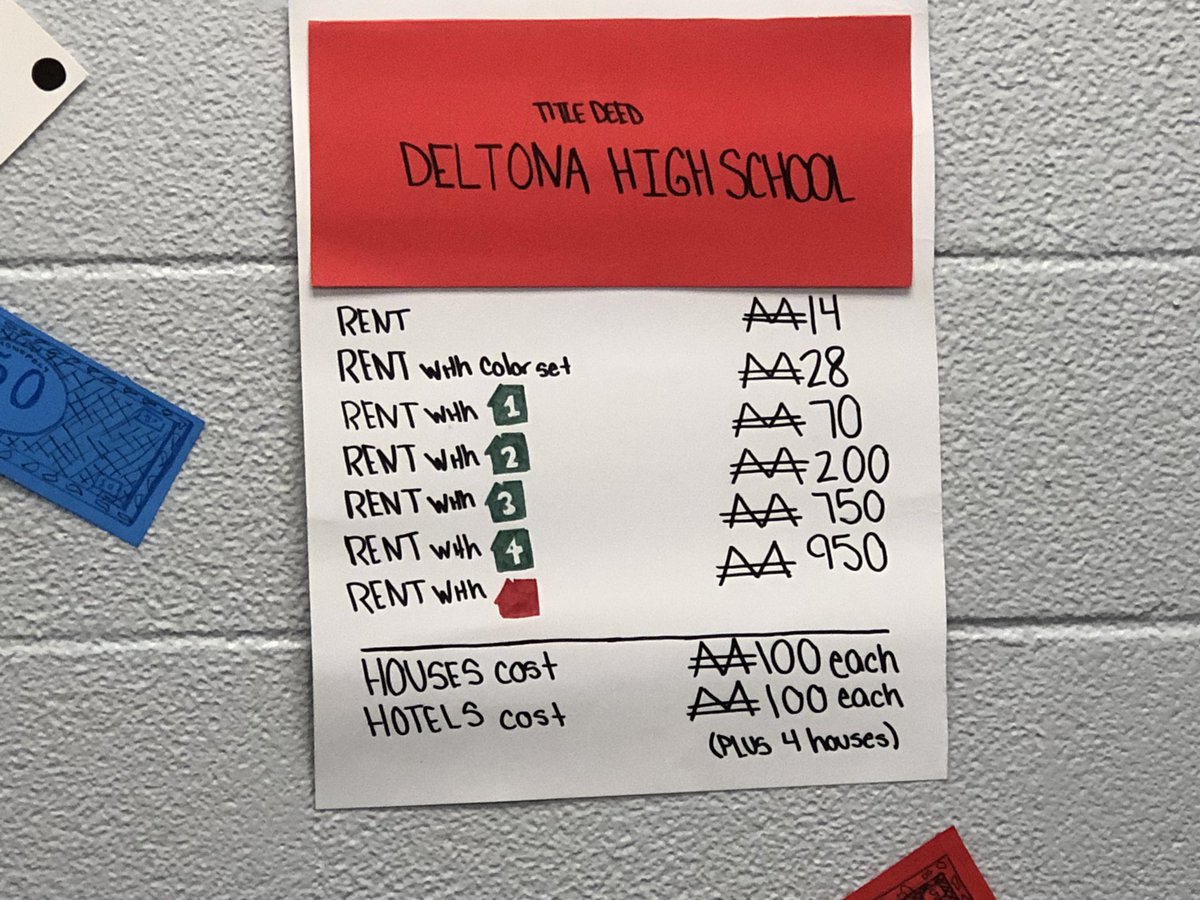 TITLE DEED
DELTONA HIGH SCHOOL
RENT 14
RENT with color set 28
RENT with 1 70
RENT with 2 200
RENT with 3 750
RENT with 4 950
RENT with
HOUSES cost 100 each
HOTELS cost 100 each
(PLUS 4 houses)
50